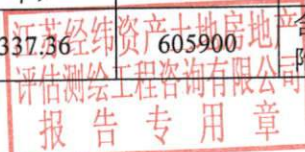 337.36 605900
江苏经纬资产土地房地产
评估测绘工程咨询有限公司
报告专用章